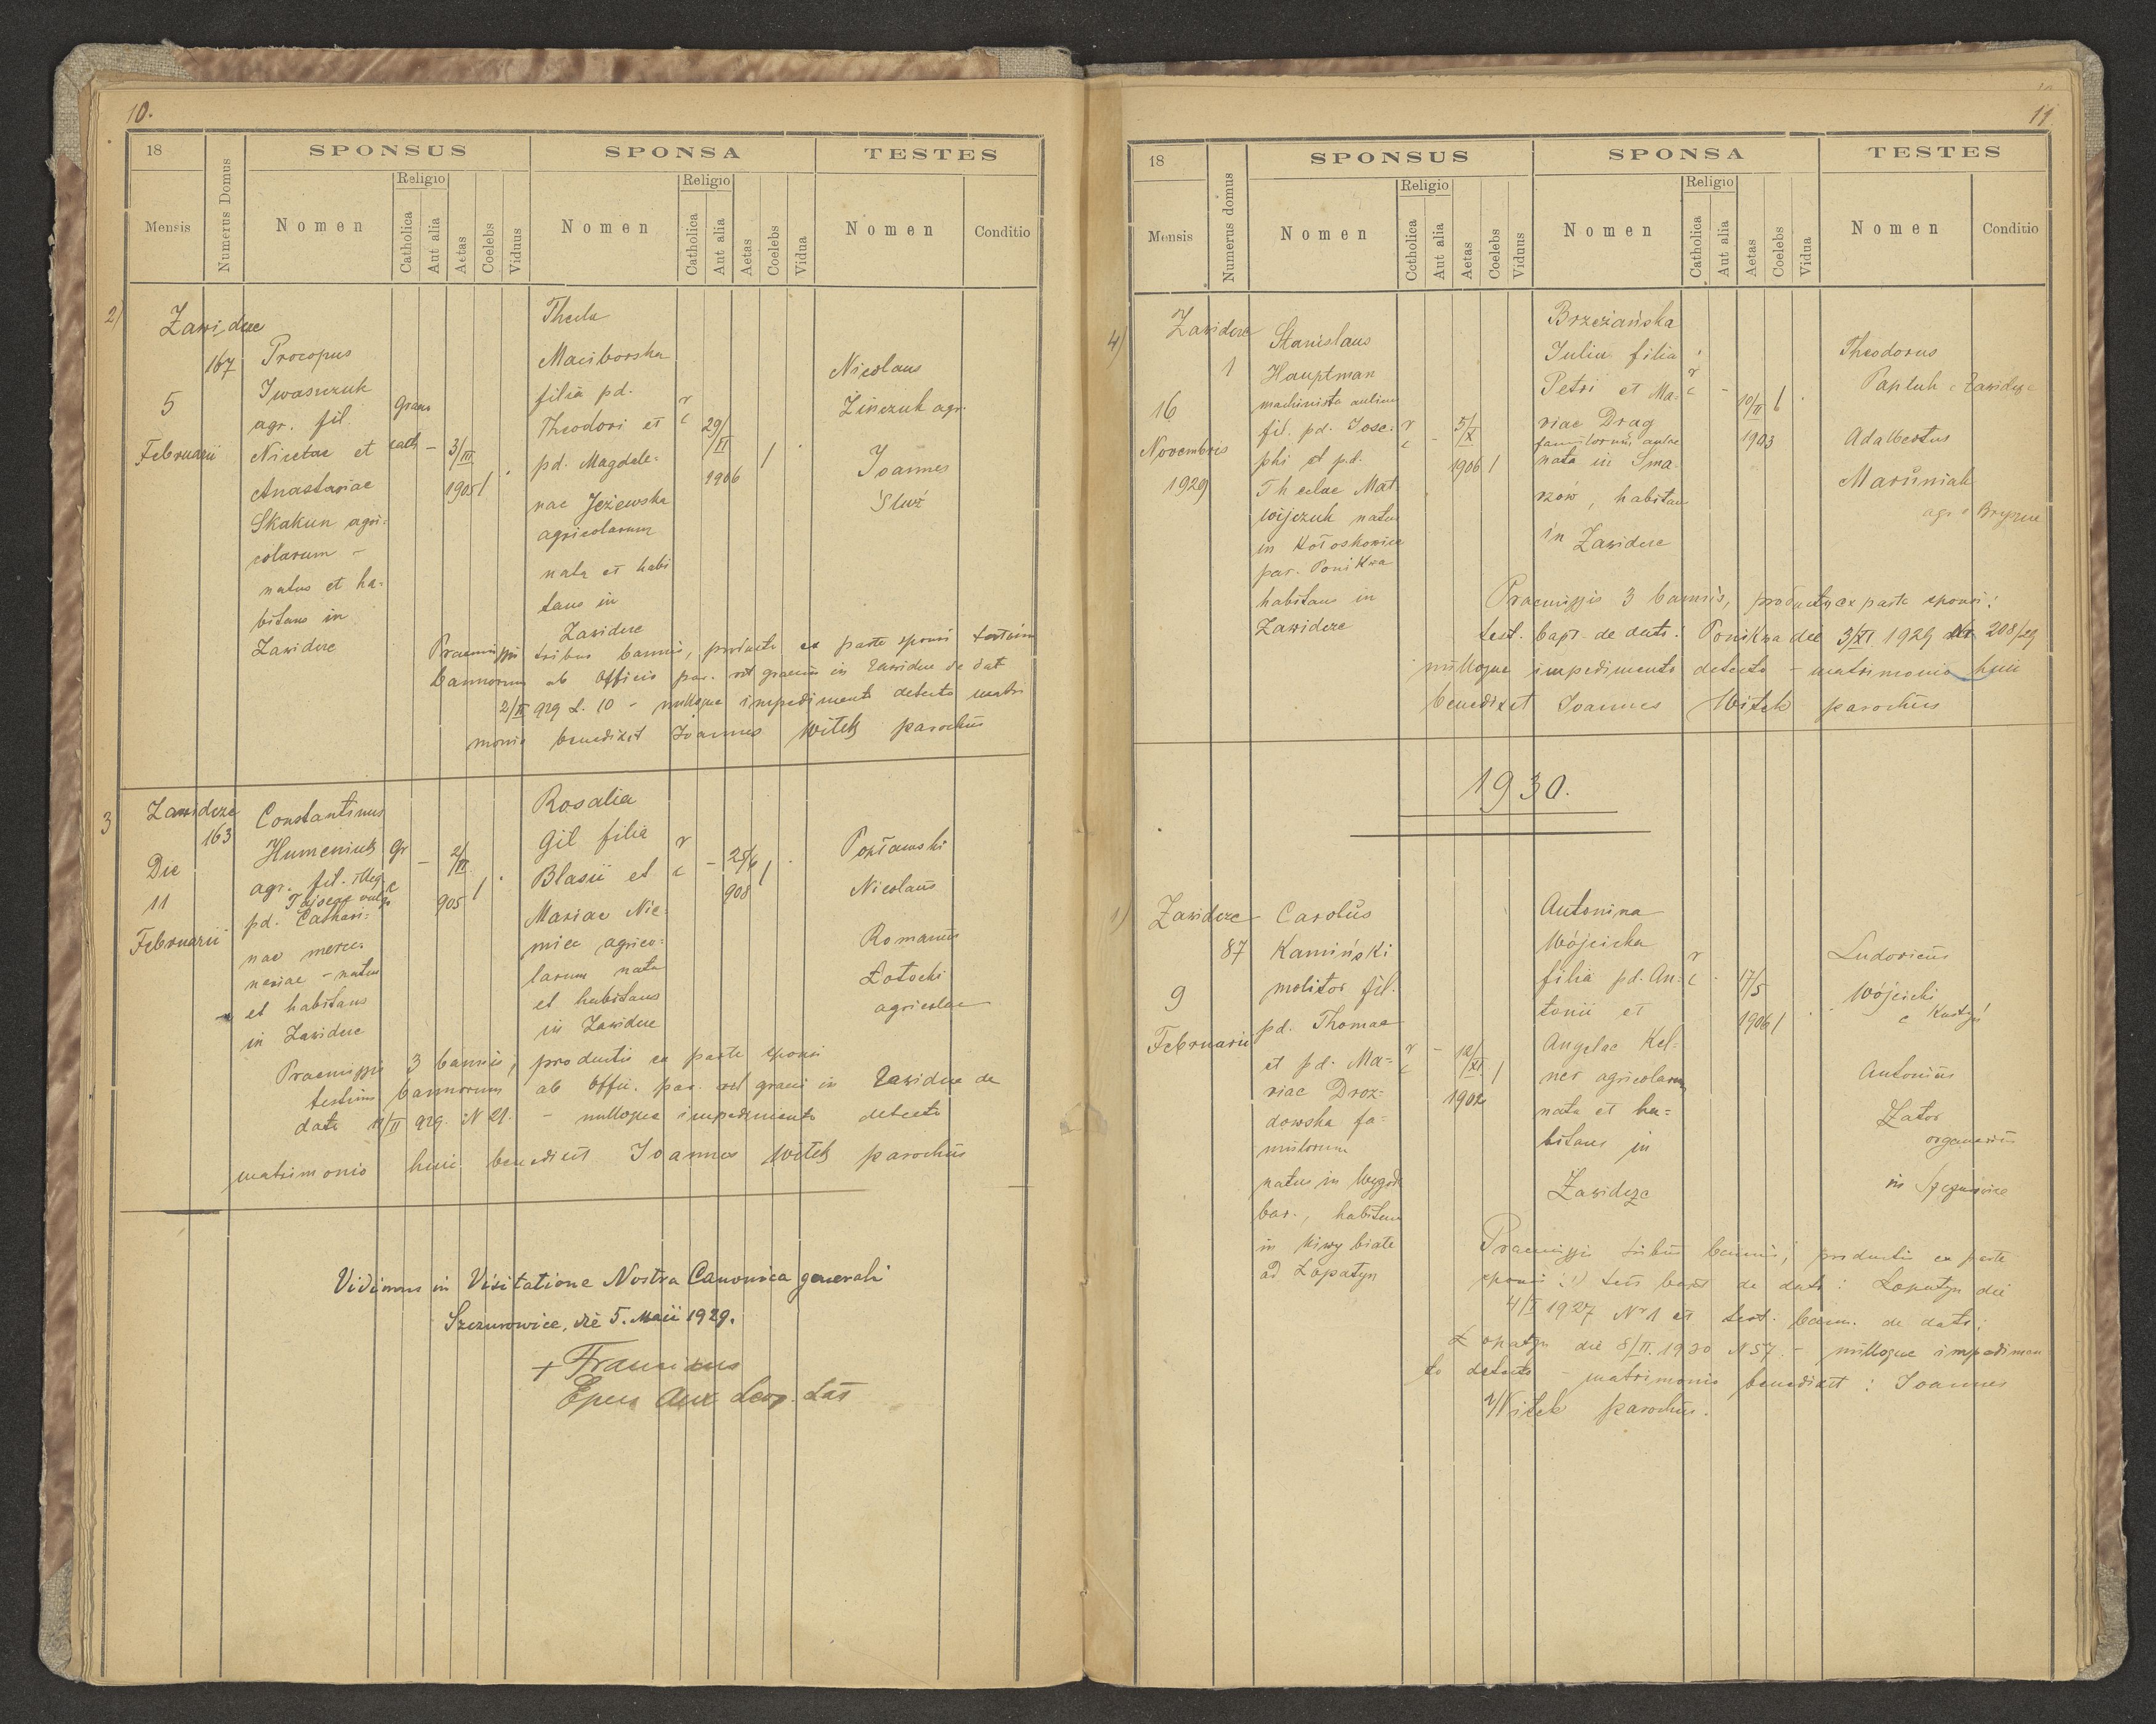 10.
18
Numerus Domus
SPONSUS
SPONSA
TESTES
Mensis
Nomen
Religio
Catholica
Aut alia
Aetas
Coelebs
Viduus
Nomen
Religio
Catholica
Aut alia
Aetas
Coelebs
Vidua
Nomen
Conditio
2)
Zawidcze
167
5
Februarii
Procopus
Iwaszczuk
agr. fil.
Nicetae et
Anastasiae
Skakun agri-
colarum -
natus et ha-
bitans in
Zawidcze
graec
cath
-
3/III
1905
Thecla
Maciborska
filia pd.
Theodori et
pd. Magdale-
nae Jeżewska
agricolarum
nata et habi
tans in
Zawidcze
r
c
29/
II
1906
Nicolaus
Zinczuk agr.
Joannes
Słuź
Praemissis tribus bannis, producto ex parte sponsi testim
bannorum ab Officio par. rit graeci in Zawidcze de dat
2/II 929 L. 10 - nulloque impedimento detecto matri
monio benedixit Joannes Witek parochus
3
Zawidcze
163
Die
11
Februarii
Constantinus
Humeniuk
agr. fil. illeg.
pd. Cathari-
nae merce-
nariae - natus
et habitans
in Zawidcze
gr
c
-
2/II
905
Rosalia
Gil filia
Blasii et
Mariae Nie-
miec agrico-
larum nata
et habitans
in Zawidcze
r
c
-
25/6
908
Nicolaus
Romanus
Łotocki
agricolae
Praemissis 3 bannis, productis ex parte sponsi
testim bannorum ab offic. par. rit graeci in Zawidcze de
dato 11/II 929. N 21. - nulloque impedimento detecto
matrimonio huic benedixit Joannes Witek parochus
Vidimus in Visitatione Nostra Canonica generali
Szczurowice, die 5. Maii 1929.
+ Franciscus
Eppus Aux Leop. Lat
11
18
Numerus domus
SPONSUS
SPONSA
TESTES
Mensis
Nomen
Religio
Cctholica
Aut alia
Aetas
Coelebs
Viduus
Nomen
Religio
Catholica
Aut alia
Aetas
Coelebs
Vidua
Nomen
Conditio
4)
Zawidcze
1
16
Novembris
1929
Stanislaus
Hauptman
machinista aulicus
fil. pd. Jose-
phi et pd.
Theclae Mat
wijczuk natus
in Kołoskowice
par. Ponikwa
habitans in
Zawidcze
r
c
-
5/X
1906
Brzeżańska
Julia filia
Petri et Ma-
riae Drag
famulorum aulae
nata in Sma-
rzów, habitans
in Zawidcze
r
c
-
10/II
1903
Theodorus
Papluh e Zawidcze
Adalbertus
Maruniak
Praemissis 3 bannis, productis ex parte sponsi:
test. bapt. de dato: Ponikwa die 3/XI 1929 208/29
nulloque impedimento detecto - matrimonio huic
benedixit Joannes Witek parochus
1930.
1)
Zawidcze
87
9
Februarii
Carolus
Kamiński
molitor fil.
pd. Thomae
et pd. Ma-
riae Droz-
dowska fa-
mulorum
natus in Wygoda
bar., habitans
in Niwy białe
ad Łopatyn
r
c
-
12/XI
1902
Antonina
Wójcicka
filia pd. An-
tonii et
Angelae Kel-
ner agricolarum
nata et ha-
bitans in
Zawidcze
r
c
17/5
1906
Ludovicus
Wójcicki
Antonius
Zator
organarius
in Szczurowice
Praemissis tribus bannis, productis ex parte
sponsi: 1) test bapt de dato: Łopatyn die
4/I 1927 Nr 1 et test. bann. de dato:
Łopatyn die 8/II. 1930 N 57. - nulloque impedimen
to detecto - matrimonio benedixit: Joannes
Witek parochus.